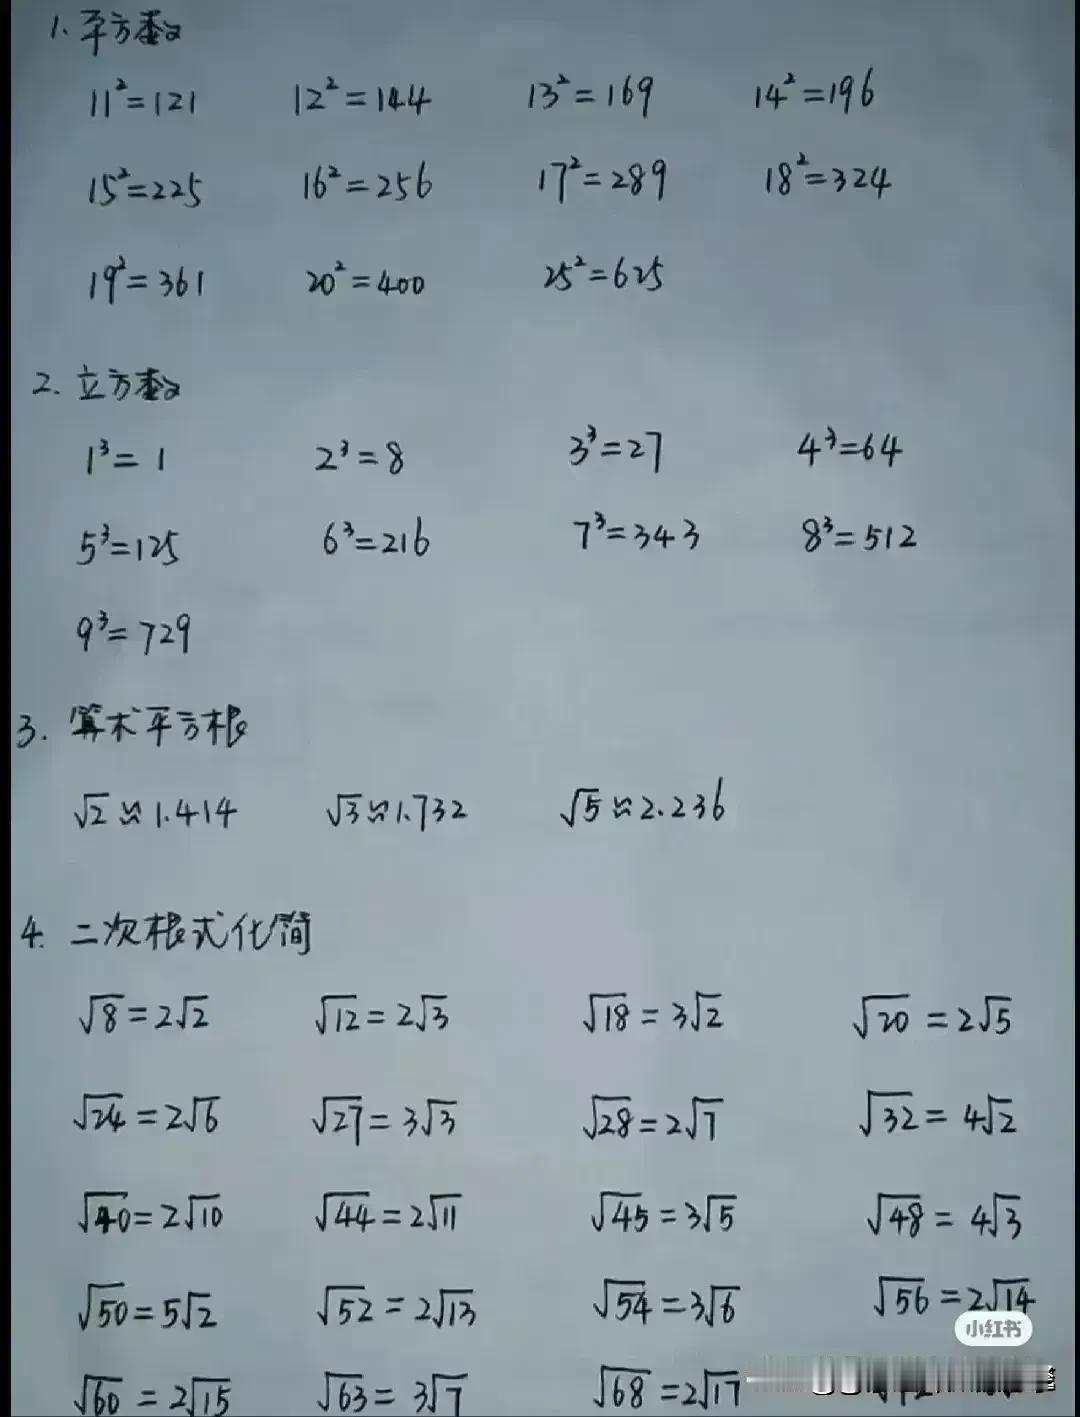 1. 平方数
11²=121 12²=144 13²=169 14²=196
15²=225 16²=256 17²=289 18²=324
19²=361 20²=400 25²=625
2. 立方数
1³=1 2³=8 3³=27 4³=64
5³=125 6³=216 7³=343 8³=512
9³=729
3. 算术平方根
√2≈1.414 √3≈1.732 √5≈2.236
4. 二次根式化简
√8=2√2 √12=2√3 √18=3√2 √20=2√5
√24=2√6 √27=3√3 √28=2√7 √32=4√2
√40=2√10 √44=2√11 √45=3√5 √48=4√3
√50=5√2 √52=2√13 √54=3√6 √56=2√14
小红书
√60=2√15 √63=3√7 √68=2√17